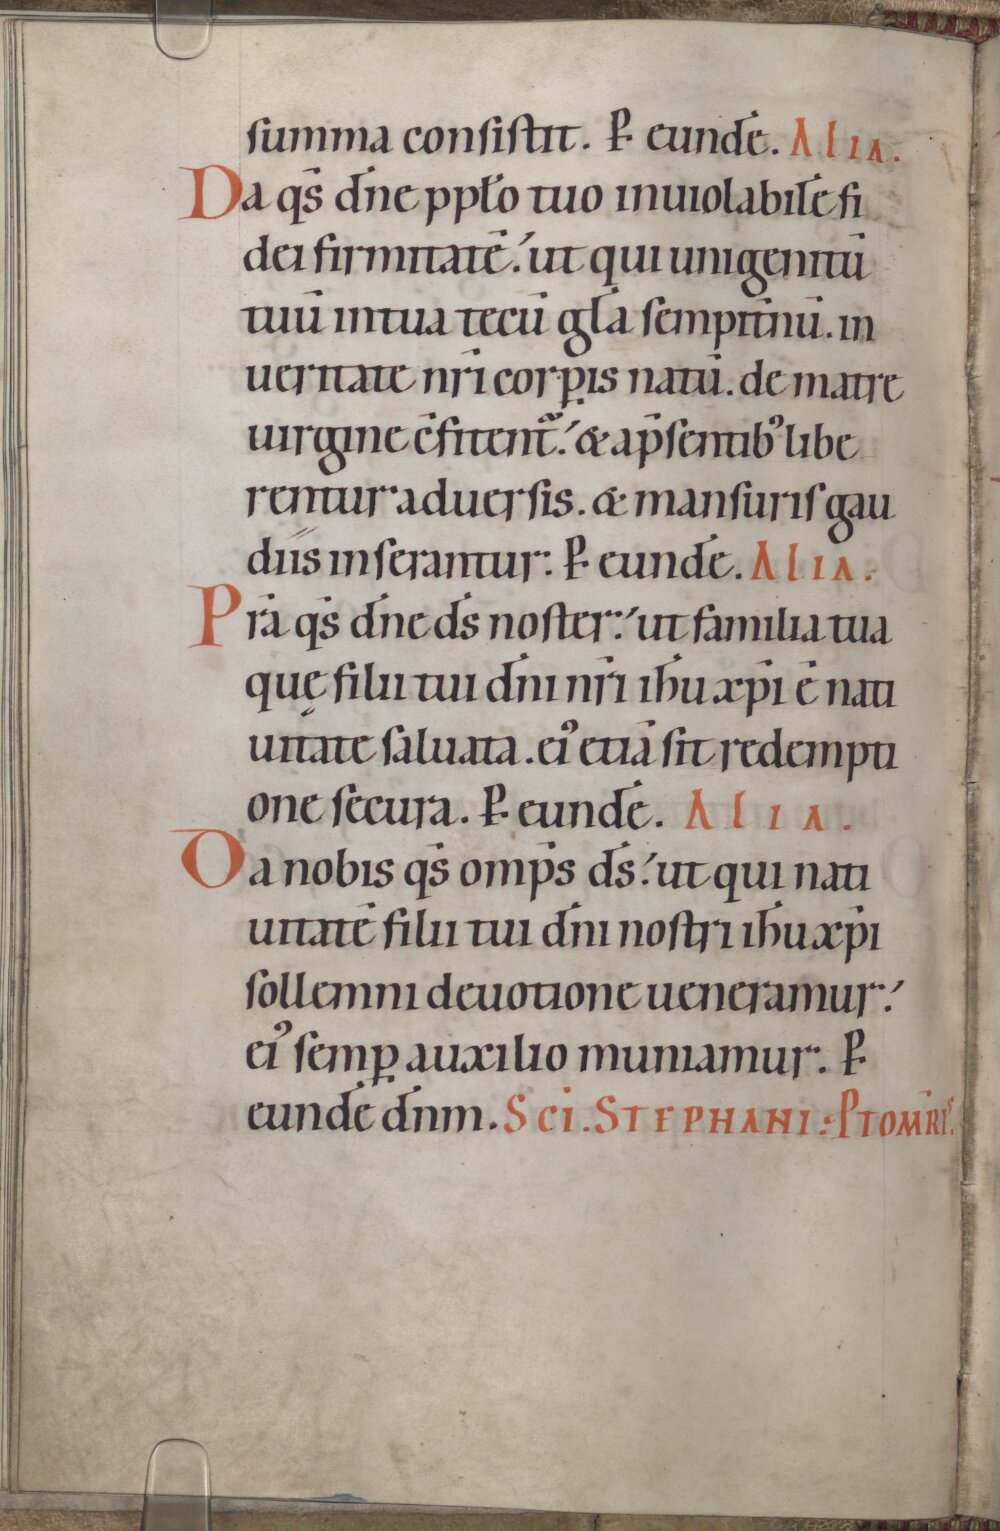 summa consistit. P̲ eundē. Alia.
Da qs̄ dn̄e pplo tuo inuiolabilē fi
dei firmitatē. ut qui unigenitū
tuū in tua tecū glā sempitn̄ū. in
ueritate nr̄i corꝑis natū. de matre
uirgine c̄fitent᷑. & a p̄sentibꝰ libe
rentur aduersis. & mansuris gau
diis inserantur. P̲ eundē. Alia.
Prā qs̄ dn̄e ds̄ noster. ut familia tua
quę filii tui dn̄i nr̄i ih̄u xp̄i ē nati
uitate saluata. eiꝰ etiā sit redempti
one secura. P̲ eundē. Alia.
Da nobis qs̄ omp̄s ds̄. ut qui nati
uitatē filii tui dn̄i nostri ih̄u xp̄i
sollemni deuotione ueneramur.
eiꝰ semꝑ auxilio muniamur. P̲
eundē dn̄m. SCĪ. STEPHANI. PTOMR̄IS.